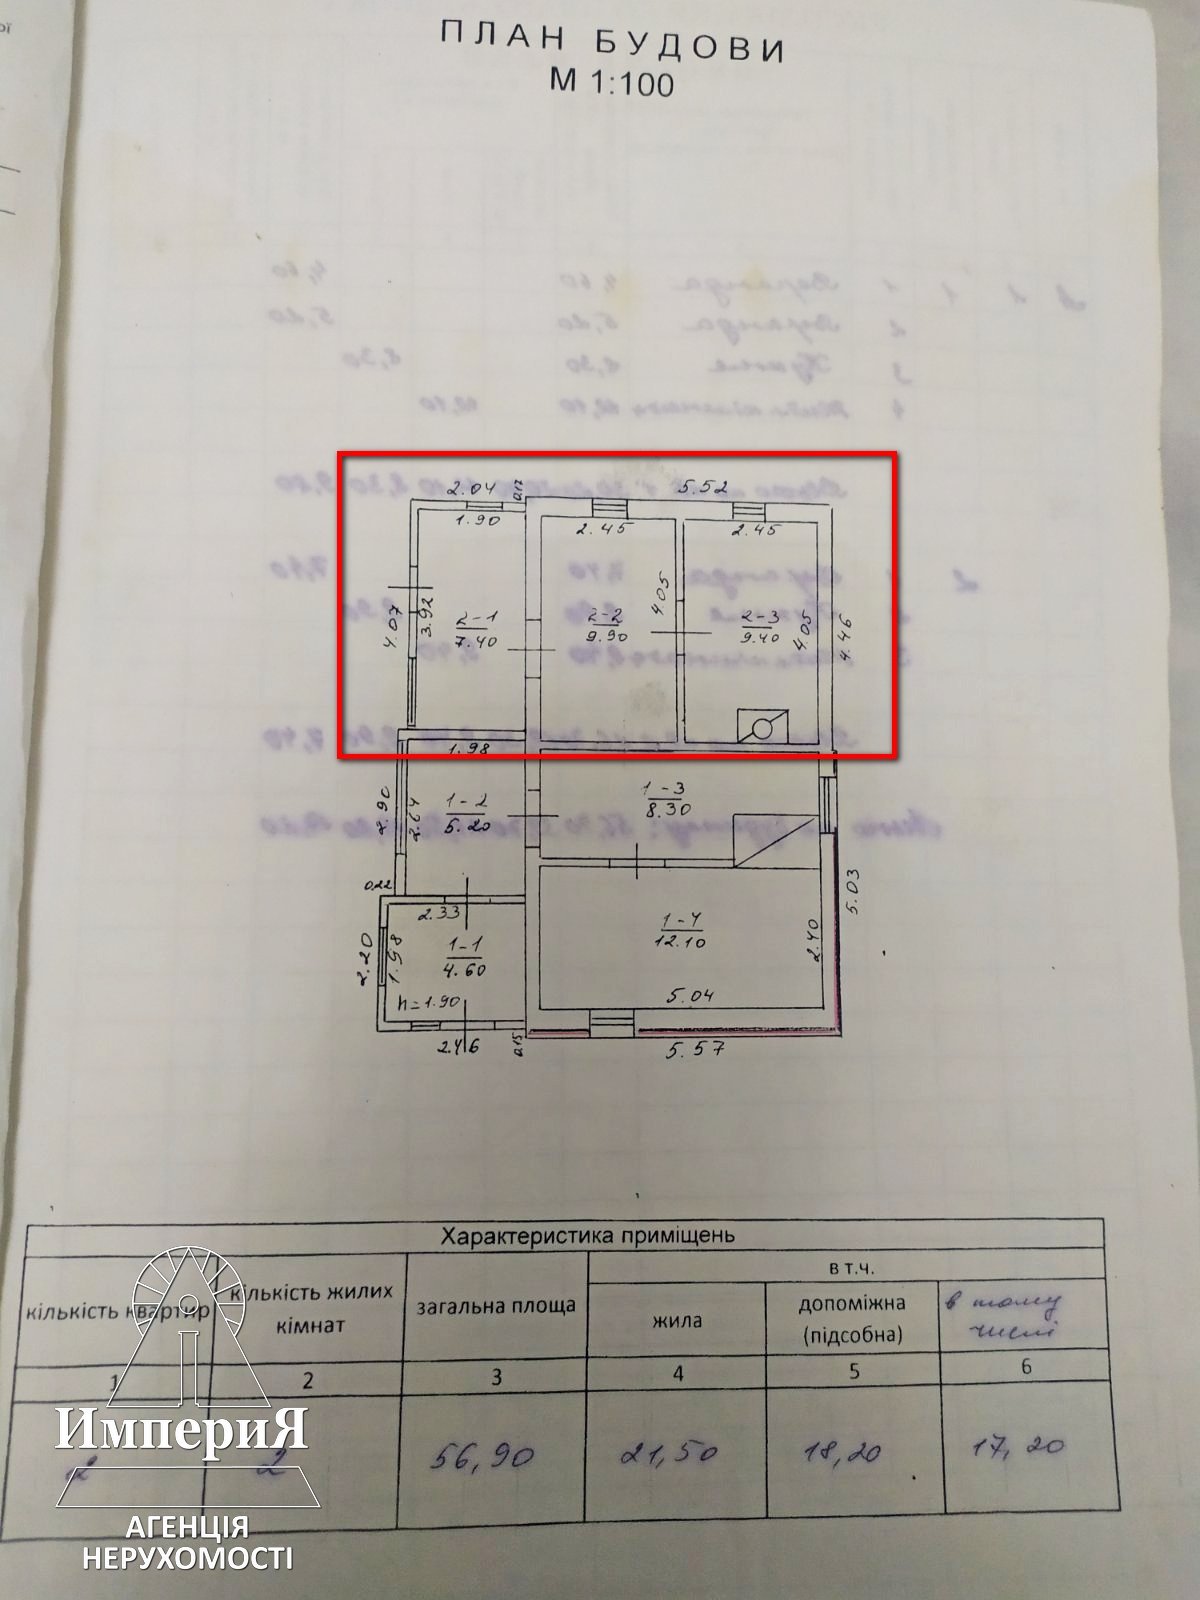 ПЛАН БУДОВИ
М 1:100
2.04
0.12
5.52
1.90
2.45
2.45
4.07
3.92
2-1
7.40
4.05
2-2
9.90
2-3
9.40
4.05
4.46
1.98
2.90
2.64
1-2
5.20
1-3
8.30
0.22
2.33
5.03
2.20
1.98
1-1
4.60
h=1.90
1-4
12.10
2.40
5.04
2.46
0.15
5.57
Характеристика приміщень
кількість квартир
кількість жилих кімнат
загальна площа
в т.ч.
жила
допоміжна (підсобна)
в тому числі
1 2 3 4 5 6
2 2 56,90 21,50 18,20 17,20
ИмпериЯ
АГЕНЦІЯ
НЕРУХОМОСТІ